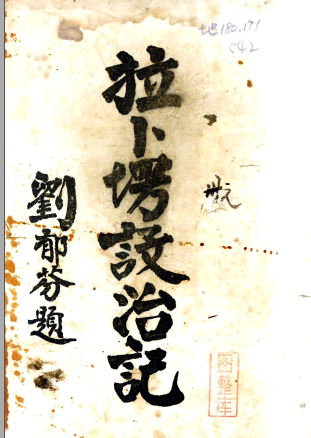 地180.171
542
拉卜塄設治記
劉郁芬題
圖整库